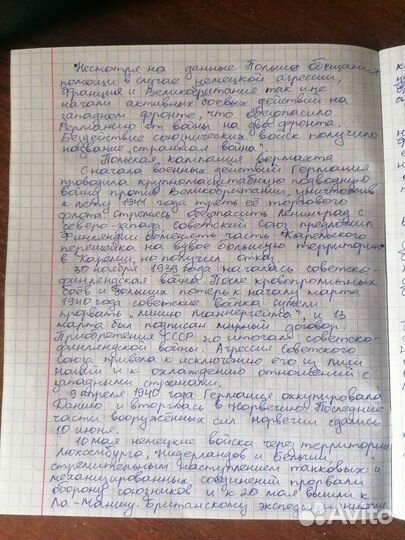 Несмотря на данные Польше обещания
помощи в случае немецкой агрессии,
Франция и Великобритания так и не
начали активных боевых действий на
западном фронте, что обезопасило
Германию от войны на два фронта.
Бездействие союзнических войск получило
название „странная война".
Польская кампания вермахта
С начала военных действий Германия
проводила крупномасштабную подводную
войну против Великобритании, уничтожив
к лету 1941 года треть её торгового
флота стремясь обезопасить Ленинград с
северо-запада Советский Союз предложил
Финляндии обменять часть Карельского
перешейка на вдвое большую территорию
в Карелии, но получил отказ.
30 ноября 1939 года началась советско-
финляндская война. После кровопролитных
боёв и больших потерь к началу марта
1940 года советские войска сумели
прорвать „линию Маннергейма", и 13
марта был подписан мирный договор.
Приобретения СССР по итогам советско-
финляндской войны. Агрессия Советского
Союза привела к исключению его из Лиги
Наций и к охлаждению отношений с
западными странами.
9 апреля 1940 года Германия оккупировала
Данию и вторглась в Норвегию. Последние
части вооружённых сил Норвегии сдались
10 июня.
10 мая немецкие войска через территории
Люксембурга, Нидерландов и Бельгии
стремительным наступлением танковых и
механизированных соединений прорвали
оборону союзников и к 20 мая вышли к
Ла-Маншу. Британскому экспедиционному
Avito